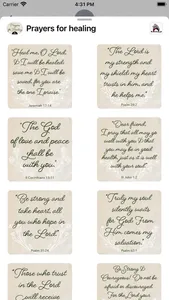 4:31 PM
Prayers for healing
Heal me, O Lord,
& I will be healed;
save me & I will be
saved, for you are
the one I praise.
Jeremiah 17:14
"The Lord is
my strength and
my shield; my heart
trusts in him, and
he helps me.
Psalm 28:7
"The God
of love and peace
shall be
with you."
2 Corinthians 13:11
"Dear friend,
I pray that all may go
well with you and that
you may be in good health,
just as it is well
with your soul."
III John 1:2
"Be strong and
take heart, all
you who hope in
the Lord."
Psalm 31:24
Truly my soul
silently waits
for God; From
Him comes my
salvation."
"Those who trust
in the Lord
will receive
Be Strong &
Courageous! Do not be
afraid or discouraged.
For the Lord